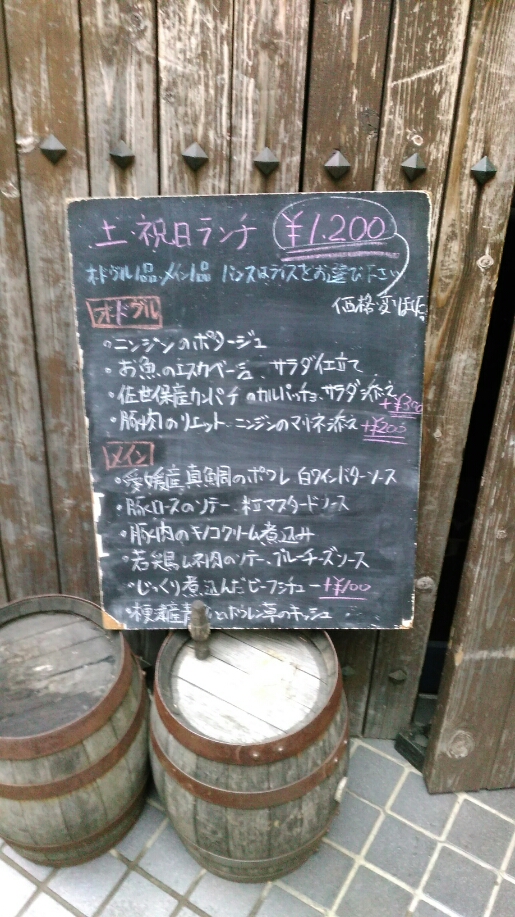 土・祝日ランチ ¥1,200
オードヴル1品・メイン1品 パン又はライスをお選び下さい
価格変
オードブル
・ニンジンのポタージュ
・お魚のエスカベーシュ サラダ仕立て
・佐世保産カンパチのカルパッチョ、サラダ添え +¥300
・豚肉のリエット ニンジンのマリネ添え +¥200
メイン
・愛媛産真鯛のポワレ 白ワインバターソース
・豚ロースのソテー 粒マスタードソース
・豚肉のキノコクリーム煮込み
・若鶏ムネ肉のソテー、ブルーチーズソース
・じっくり煮込んだビーフシチュー +¥100
ほうれん草のキッシュ